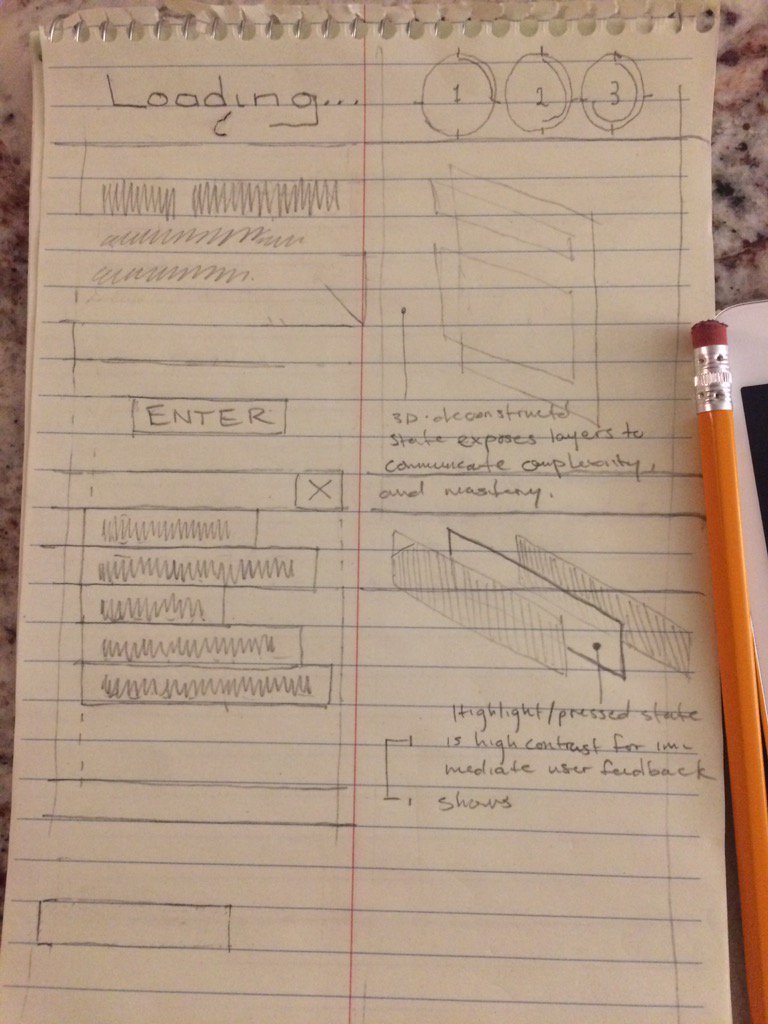 Loading...
1 2 3
ENTER
X
3D-deconstructd
state exposes layers to
communicate complexity,
and mastery.
Highlight/pressed state
is high contrast for im-
mediate user feedback
shows